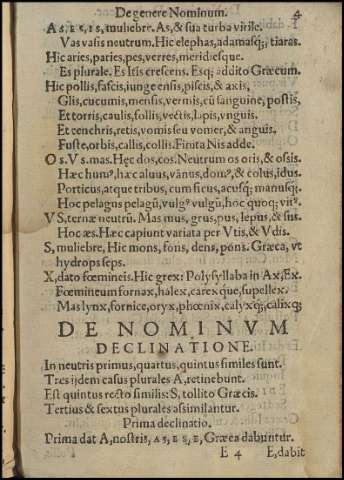 De genere Nominum. 4
AS, ES, IS, muliebre. As, & sua turba virile.
Vas vasis neutrum. Hic elephas, adamasq́;, tiaras.
Hic aries, paries, pes, verres, meridiesque.
Es plurale. Es Itis crescens. Esq; addito Græcum.
Hic pollis, fascis, iunge ensis, piscis, & axis,
Glis, cucumis, mensis, vermis, cū sanguine, postis,
Et torris, caulis, follis, vectis, lapis, vnguis.
Et cenchris, retis, vomis seu vomer, & anguis.
Fuste, orbis, callis, collis. Finita Nis adde.
Os. Vs. mas. Hęc dos, cos. Neutrum os oris, & ossis.
Hæc humꝰ, hæc aluus, vānus, domꝰ, & colus, idus.
Porticus, atque tribus, cum ficus, acusq́; manusq́;.
Hoc pelagus pelagū, vulgꝰ vulgū, hoc quoq; virꝰ.
VS, ternæ neutrū. Mas mus, grus, pus, lepus, & sus.
Hoc æs. Hæc capiunt variata per Vtis, & Vdis.
S, muliebre, Hic mons, fons, dens, pons. Græca, vt
hydrops seps.
X, dato fœmineis. Hic grex: Polysyllaba in Ax, Ex.
Fœmineum fornax, halex, carex que, supellex.
Mas lynx, fornice, oryx, phœnix, calyxq́;, calixq́;
DE NOMINVM
DECLINATIONE.
In neutris primus, quartus, quintus similes sunt.
Tres ijdem casus plurales A, retinebunt.
Est quintus recto similis: S, tollito Græcis.
Tertius & sextus plurales assimilantur.
Prima declinatio.
Prima dat A, nostris, AS, ES, E, Græca dabuntur.
E 4 E, dabit